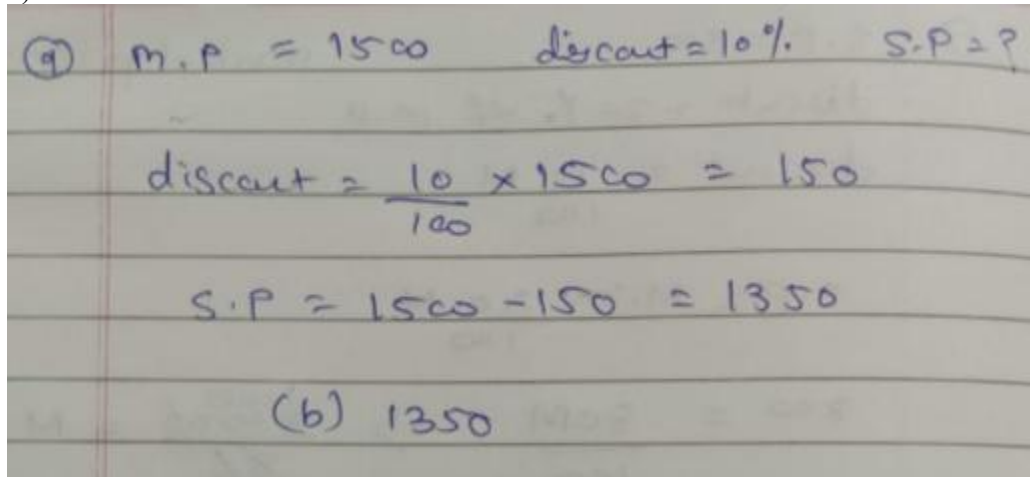 9 M.P = 1500 discout = 10% S.P = ?
discout = 10/100 × 1500 = 150
S.P = 1500 - 150 = 1350
(b) 1350